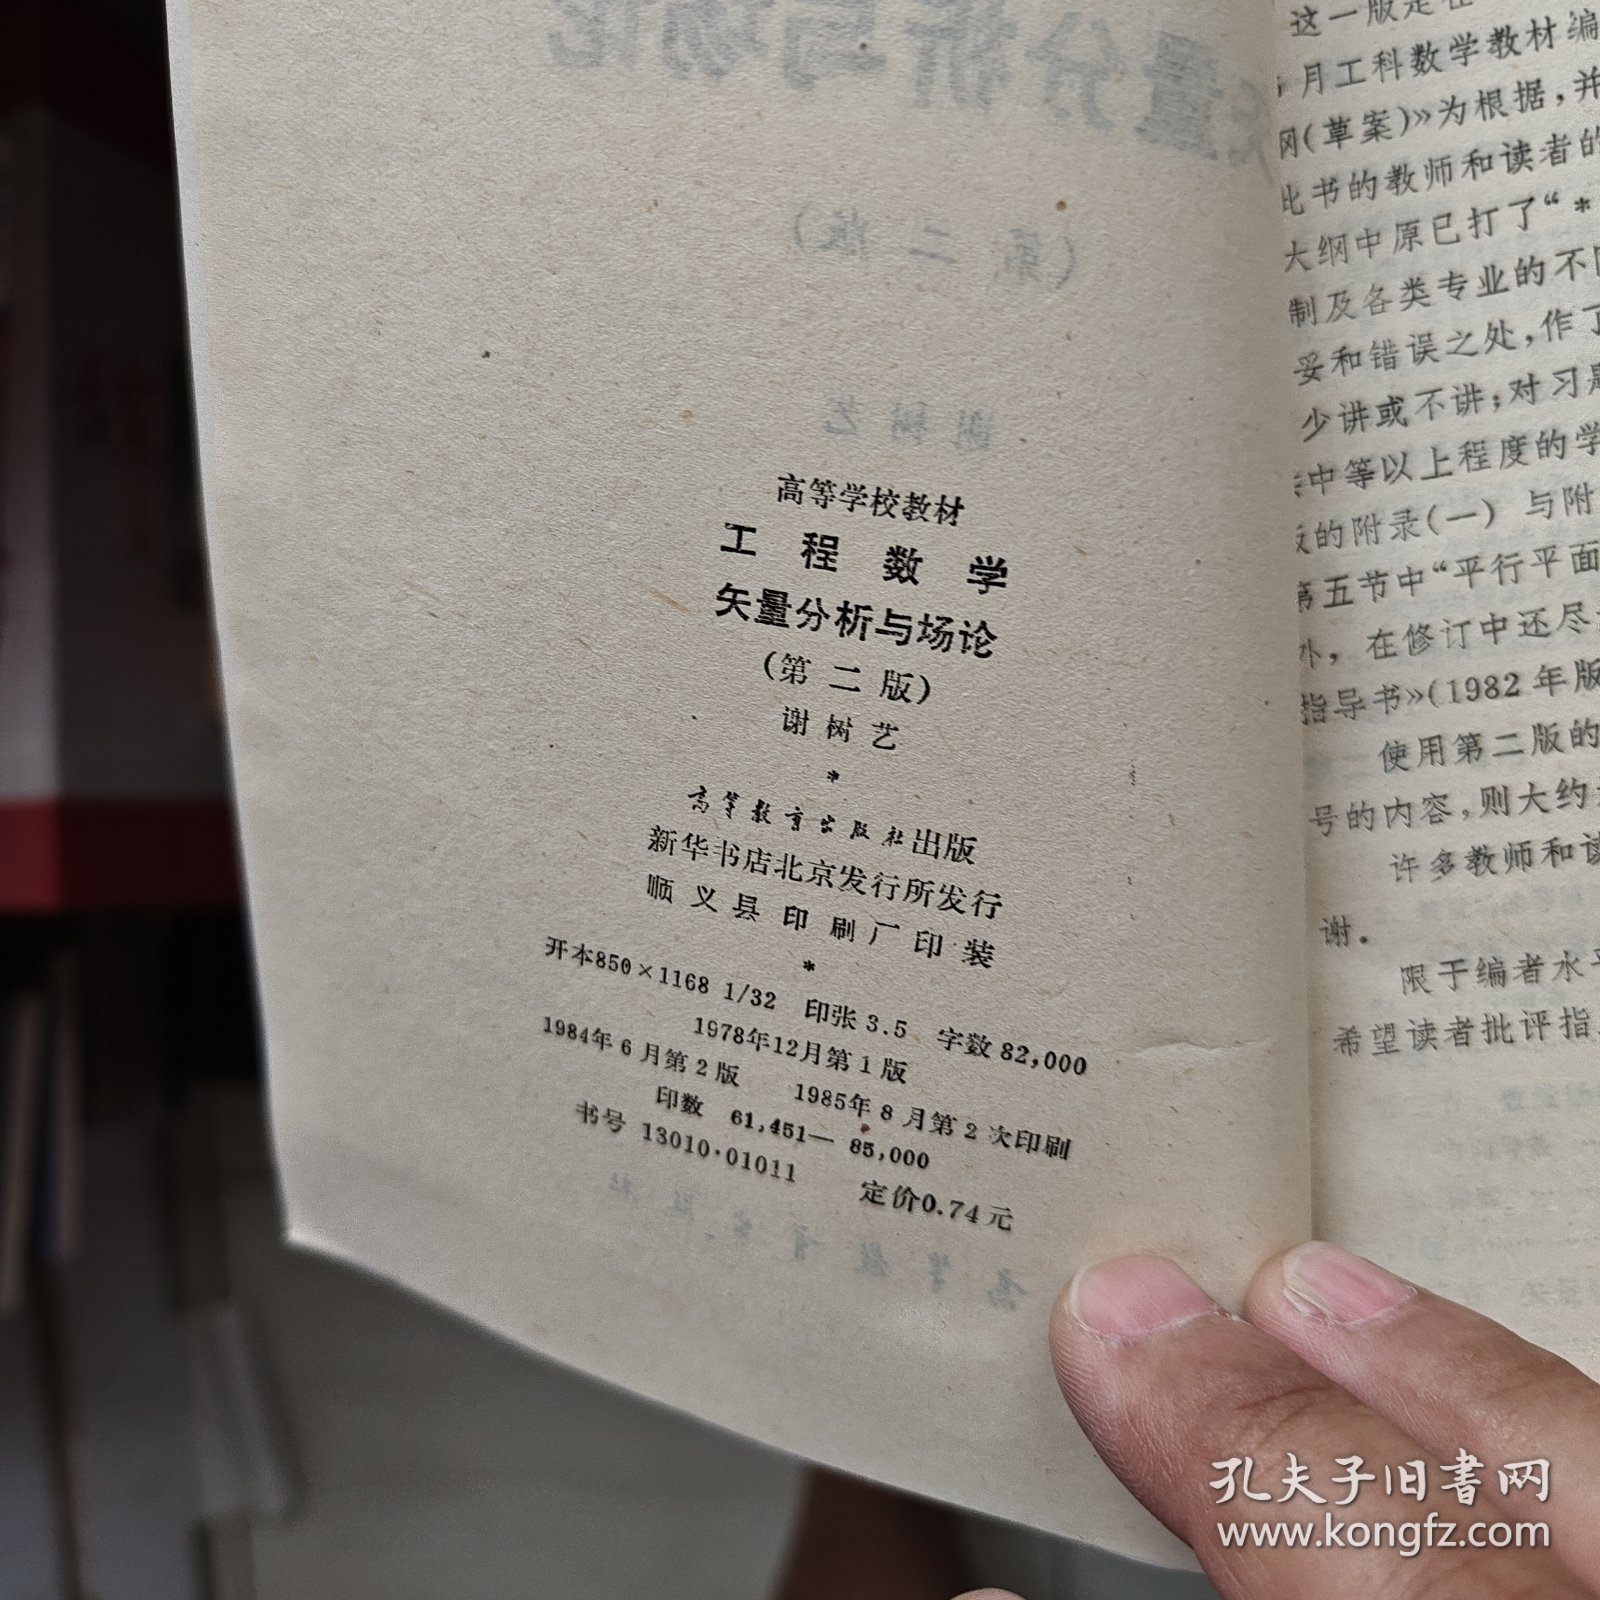 高等学校教材
工程数学
矢量分析与场论
（第二版）
谢树艺
*
高等教育出版社出版
新华书店北京发行所发行
顺义县印刷厂印装
*
开本850×1168 1/32 印张3.5 字数82,000
1978年12月第1版
1984年6月第2版 1985年8月第2次印刷
印数 61,451—85,000
书号 13010·01011 定价0.74元
这一版是在
月工科数学教材编
(草案)》为根据，并
此书的教师和读者的
大纲中原已打了“*
制及各类专业的不同
妥和错误之处，作了
少讲或不讲；对习题
中等以上程度的学
的附录(一) 与附
第五节中“平行平面
外，在修订中还尽
指导书》(1982年版
使用第二版的
号的内容，则大约
许多教师和读
谢．
限于编者水平
希望读者批评指
孔夫子旧书网
www.kongfz.com